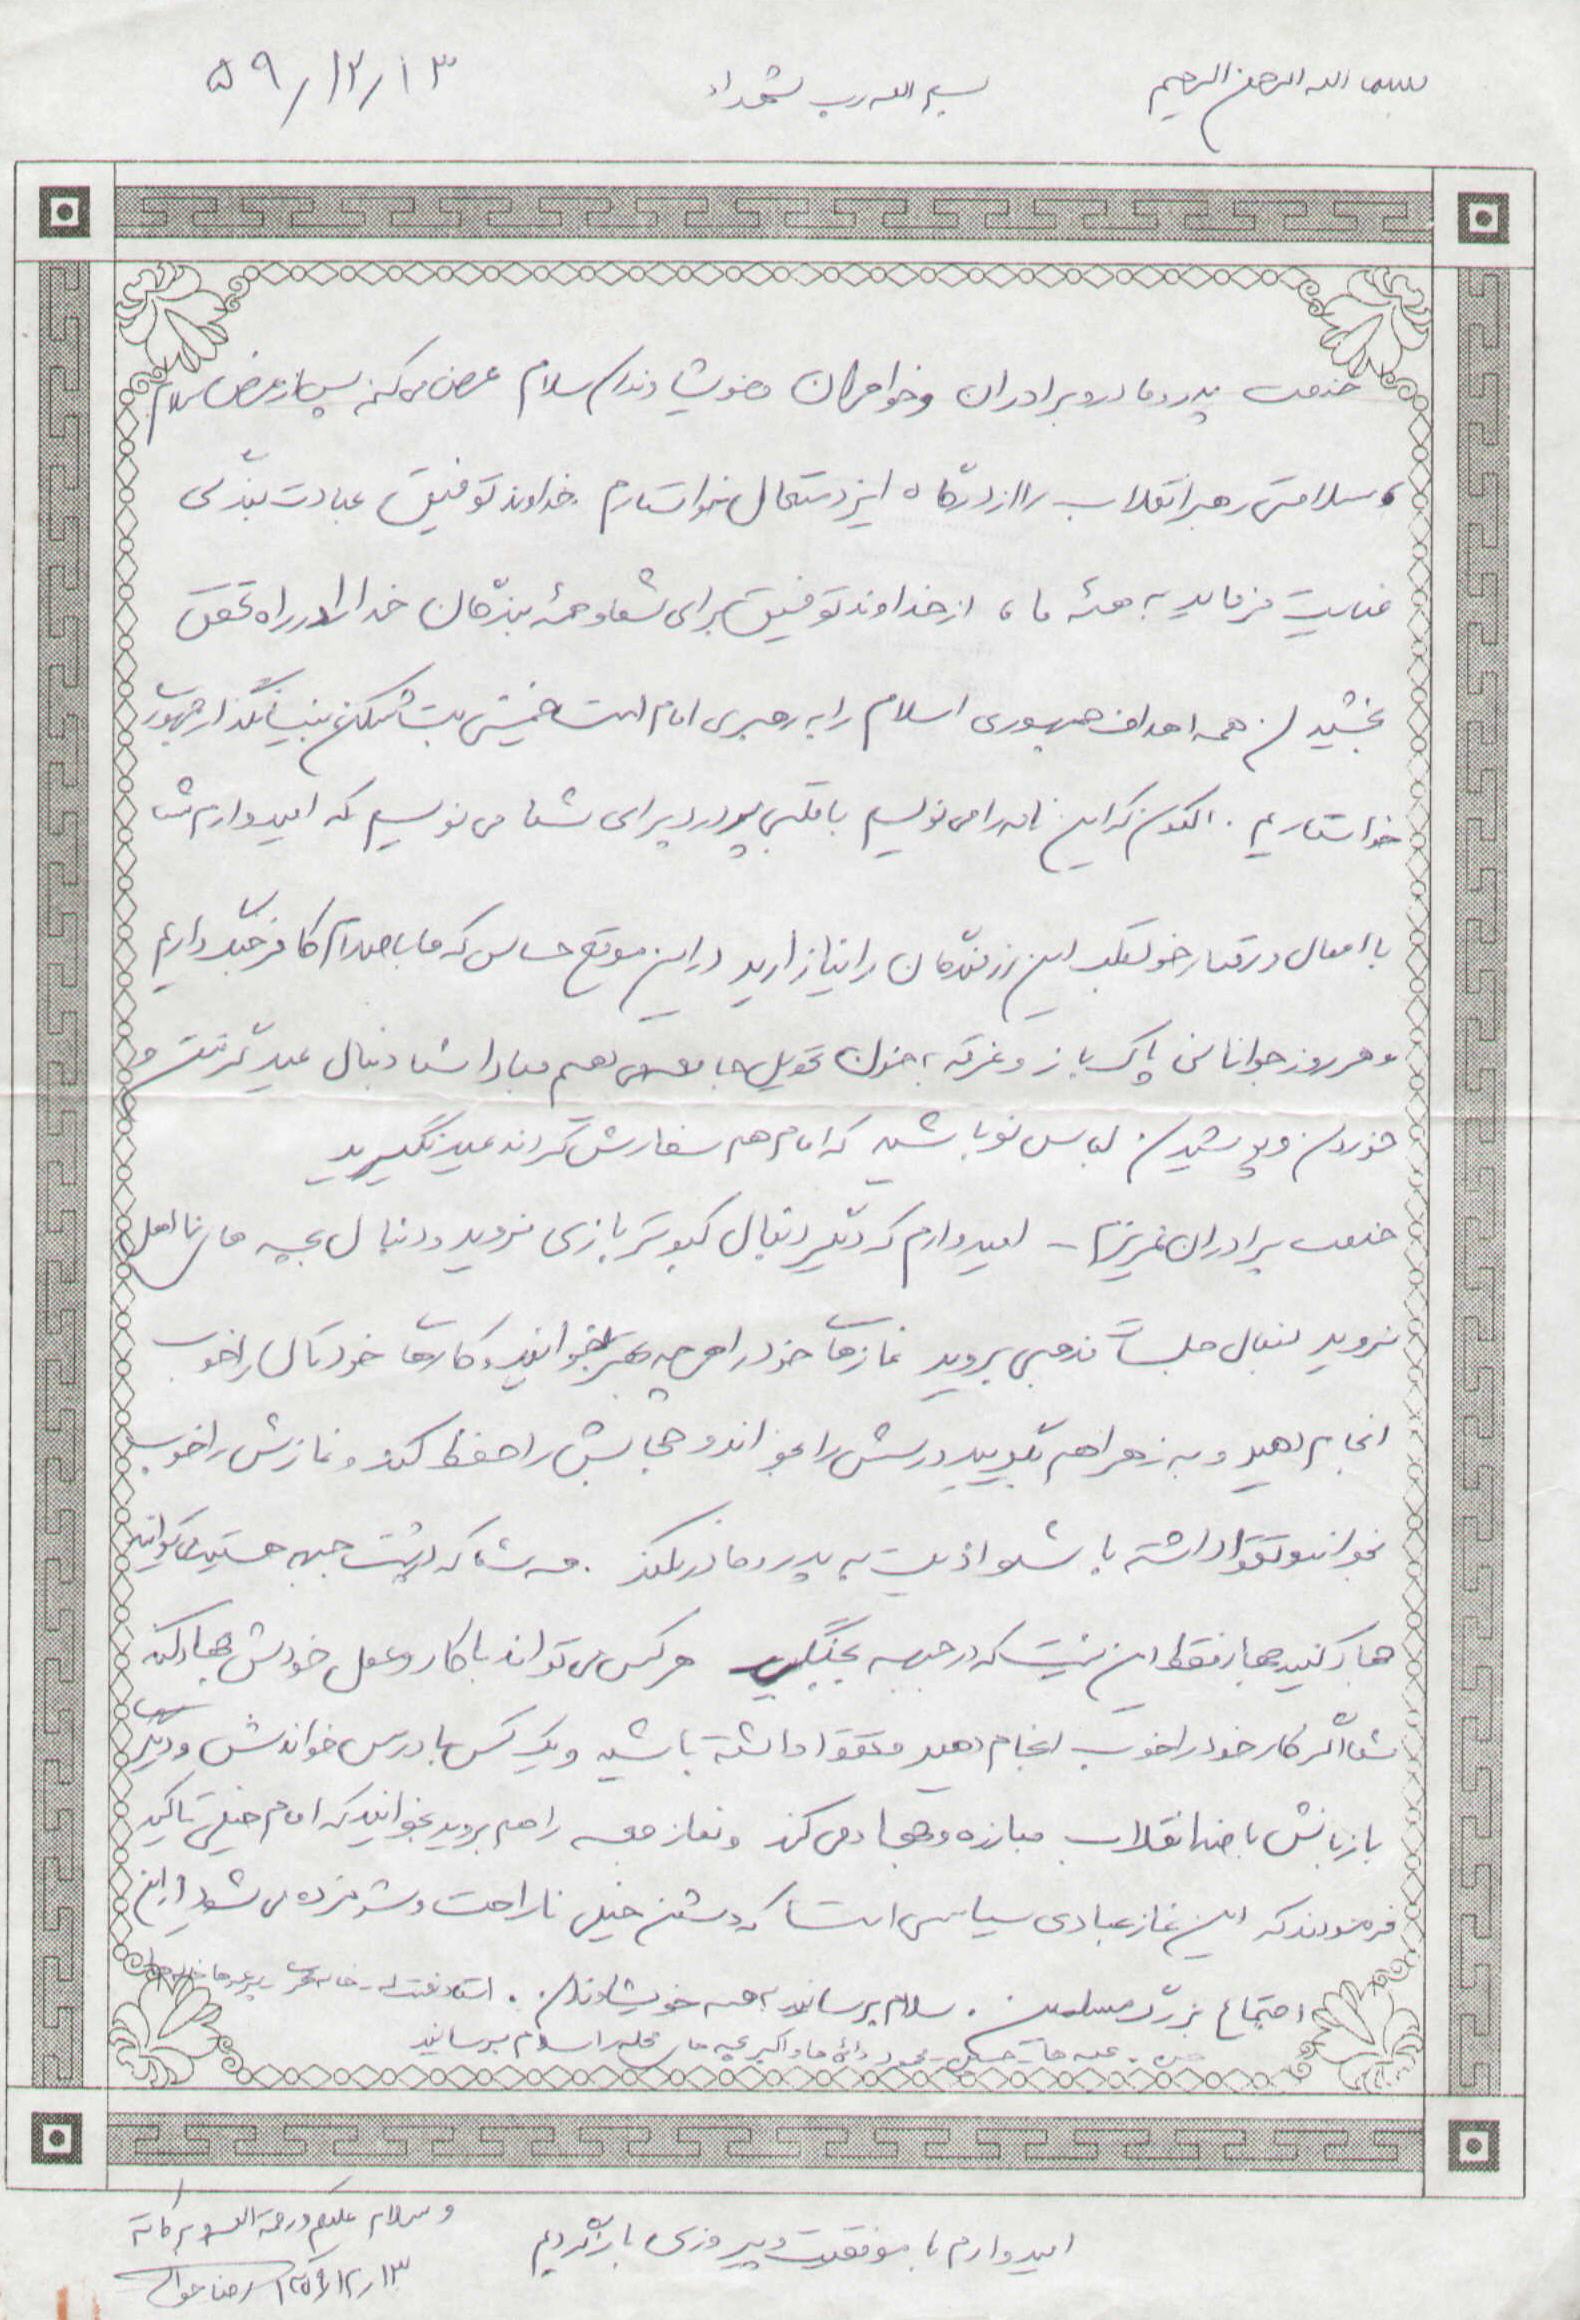 بسم الله الرحمن الرحیم
بسم الله رب شهداء
۵۹/۱۲/۱۳
خدمت پدر و مادر و برادران و خواهران و خویشاوندان سلام عرض می کنم پس از عرض سلام
و سلامتی رهبر انقلاب را از درگاه ایزد متعال خواستارم خداوند توفیق عبادت بندگی
عنایت فرماید به همه ما، از خداوند توفیق برای شما و همه بندگان خدا را در راه تحقق
بخشیدن همه اهداف جمهوری اسلام را به رهبری امام امت خمینی بت شکن بنیانگذار جمهوریت
خواستاریم. اکنون که این نامه را می نویسم با قلبی پر درد برای شما می نویسم که امیدوارم شما
با اعمال و رفتار خو این رزمندگان را نیازارید در این موقع حساس که ما با صدام کافر جنگ داریم
و هر روز جوانانی پاک باز و غرقه به خون تحویل جامعه می دهیم مبادا شما دنبال عید گرفتن و
خوردن و پوشیدن لباس نو باشید که امام هم سفارش کردند عید نگیرید
خدمت برادران عزیزم - امیدوارم که دیگر دنبال کبوتر بازی نروید و دنبال بچه های نا اهل
نروید دنبال جلسات مذهبی بروید نمازهای خود را هر چه بهتر بخوانید و کارهای خودتان را خوب
انجام دهید و به زهرا هم بگویید درسش را بخواند و حجابش را حفظ کند و نمازش را خوب
بخواند و تقوا داشته باشد و اذیت به پدر و مادر نکند. همه شما که در پشت جبهه هستید می توانید
جهاد کنید جهاد فقط این نیست که در جبهه بجنگید هر کس می تواند با کار و عمل خودش جهاد کند
شما اگر کار خود را خوب انجام دهید و تقوا داشته باشید و یک کس با درس خواندنش و دیگری
با زبانش با ضد انقلاب مبارزه و جهاد می کند و نماز جمعه را هم بروید بخوانید که امام خیلی تاکید
فرمودند که این نماز عبادی سیاسی است که دشمن خیلی ناراحت و شرمزده می شود از این
اجتماع بزرگ مسلمین. سلام برسانید به همه خویشاوندان.
عمه ها محمود دائی ها و اکبر بچه های محله را سلام برسانید
امیدوارم با موفقیت و پیروزی بازگردیم
و سلام علیکم و رحمة الله و برکاته
۱۳/۱۲/۱۳۵۹ رضا